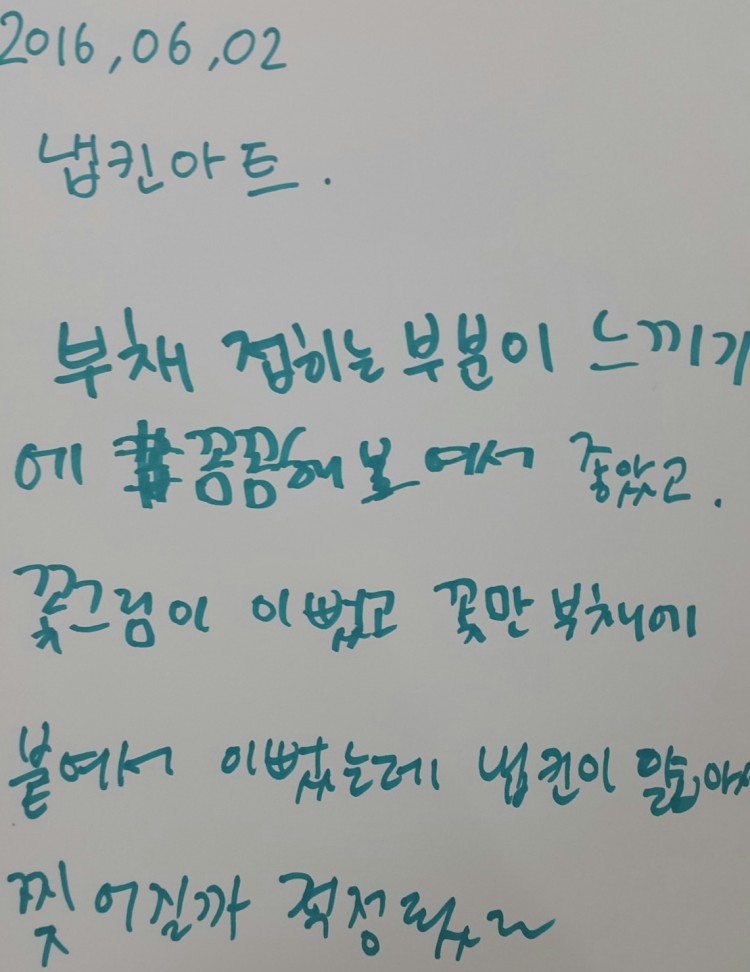 2016,06,02
냅킨아트.
부채 접히는 부분이 느끼기
에 꼼꼼해 보여서 좋았고.
꽃그림이 이뻤고 꽃만 부채에
붙여서 이뻤는데 냅킨이 얇아서
찢어질까 걱정됬~